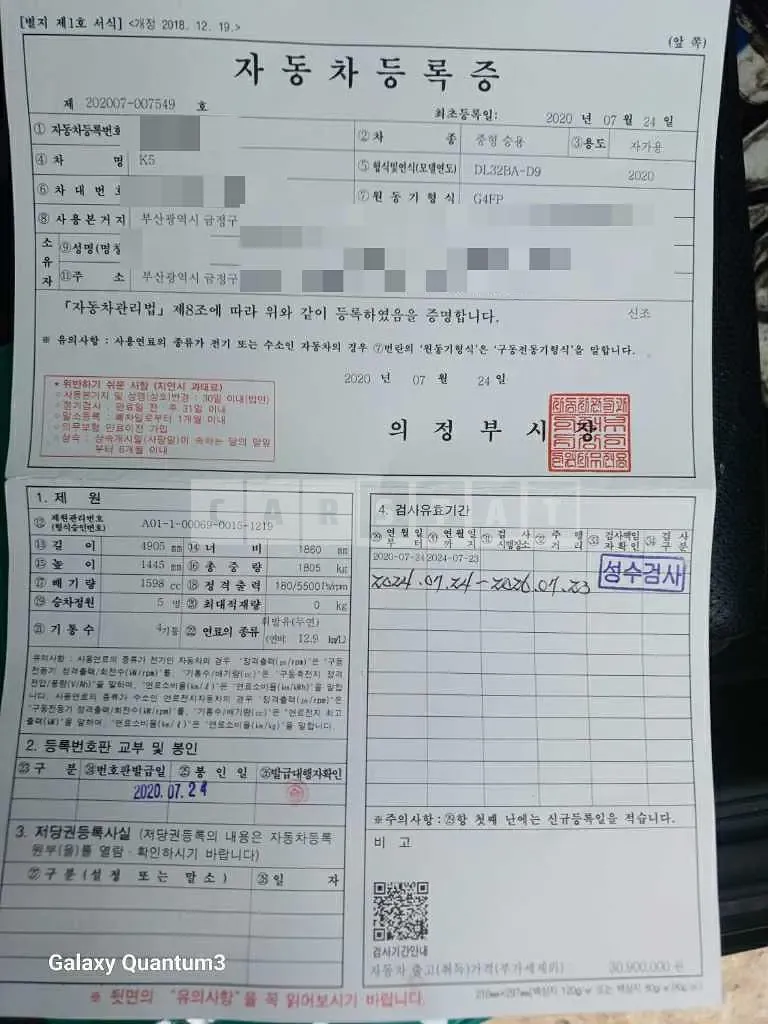 [별지 제1호 서식] <개정 2018. 12. 19.>
(앞 쪽)
자동차등록증
제 202007-007549 호
최초등록일: 2020 년 07 월 24 일
① 자동차등록번호 ② 차 종 중형 승용 ③용도 자가용
④ 차 명 K5 ⑤ 형식및연식(모델연도) DL32BA-D9 2020
⑥ 차 대 번 호 ⑦ 원 동 기 형 식 G4FP
⑧ 사 용 본 거 지 부산광역시 금정구
소유자 ⑨성명(명칭
⑪주 소 부산광역시 금정구
「자동차관리법」 제8조에 따라 위와 같이 등록하였음을 증명합니다. 신조
※ 유의사항 : 사용연료의 종류가 전기 또는 수소인 자동차의 경우 ⑦번란의 '원동기형식'은 '구동전동기형식'을 말합니다.
2020 년 07 월 24 일
* 위반하기 쉬운 사항 (지연시 과태료)
○사용본거지 및 성명(상호)변경 : 30일 이내(법인)
○정기검사 : 만료일 전 · 후 31일 이내
○말소등록 : 폐차일로부터 1개월 이내
○의무보험 만료이전 가입
○상속 : 상속개시일(사망일)이 속하는 달의 말일
부터 6개월 이내
의 정 부 시 장
CARMAT
1. 제 원
⑫ 제원관리번호 (형식승인번호) A01-1-00069-0015-1219
⑬ 길 이 4905 mm ⑭ 너 비 1860 mm
⑮ 높 이 1445 mm ⑯ 총 중 량 1805 kg
⑰ 배 기 량 1598 cc ⑱ 정 격 출 력 180/5500Ps/rpm
⑲ 승차정원 5 명 ⑳ 최대적재량 0 kg
㉑ 기 통 수 4기통 ㉒ 연료의 종류 휘발유(무연) (연비 12.9 km/L)
유의사항 : 사용연료의 종류가 전기인 자동차의 경우 '정격출력(ps/rpm)'은 '구동
전동기 정격출력/회전수(kW/rpm)'를, '기통수/배기량(cc)'은 '구동축전지 정격
전압/용량(V/Ah)'을 말하며, '연료소비율(km/ℓ)'은 '연료소비율(km/kWh)'을 말합
니다. 사용연료의 종류가 수소인 연료전지자동차의 경우 '정격출력(ps/rpm)'은
'구동전동기 정격출력/회전수(kW/rpm)'를, '기통수/배기량(cc)'은 '연료전지 최고
출력(kW)'을 말하며, '연료소비율(km/ℓ)'은 '연료소비율(km/kg)'을 말합니다.
2. 등록번호판 교부 및 봉인
㉓구 분 ㉔번호판발급일 ㉕봉 인 일 ㉖발급대행자확인
2020.07.24
3. 저당권등록사실 (저당권등록의 내용은 자동차등록
원부(을)를 열람 · 확인하시기 바랍니다)
㉗구 분 (설 정 또 는 말 소) ㉘일 자
4. 검사유효기간
㉙ 연 월 일 부 터 ㉚ 연 월 일 까 지 ㉛ 검 사 시행장소 ㉜ 주 행 거 리 ㉝ 검사책임자확인 ㉞ 검 사 구 분
2020-07-24 2024-07-23
2024.07.24 - 2026.07.23 성수검사
※주의사항:㉙항 첫째 난에는 신규등록일을 적습니다.
비 고
검사기간안내
자동차 출고(취득)가격(부가세제외) 30,900,000 원
210㎜×297㎜(백상지 120g/㎡ 또는 백상지 80g/㎡)
※ 뒷면의 "유의사항"을 꼭 읽어보시기 바랍니다.
Galaxy Quantum3